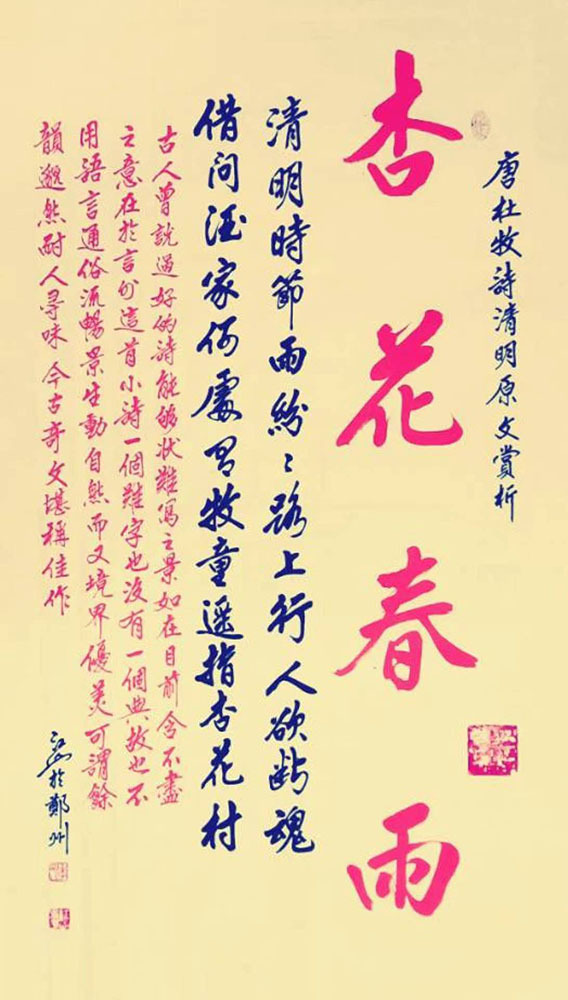 唐杜牧詩清明原文賞析
杏花春雨
清明時節雨紛〻路上行人欲斷魂
借问酒家何處有牧童遥指杏花村
古人曾説過好的詩能够状難寫之景如在目前含不盡
之意在於言外這首小詩一個難字也没有一個典故也不
用語言通俗流暢景生動自然而又境界優美可謂餘
韻邈然耐人尋味今古奇文堪稱佳作
於鄭州